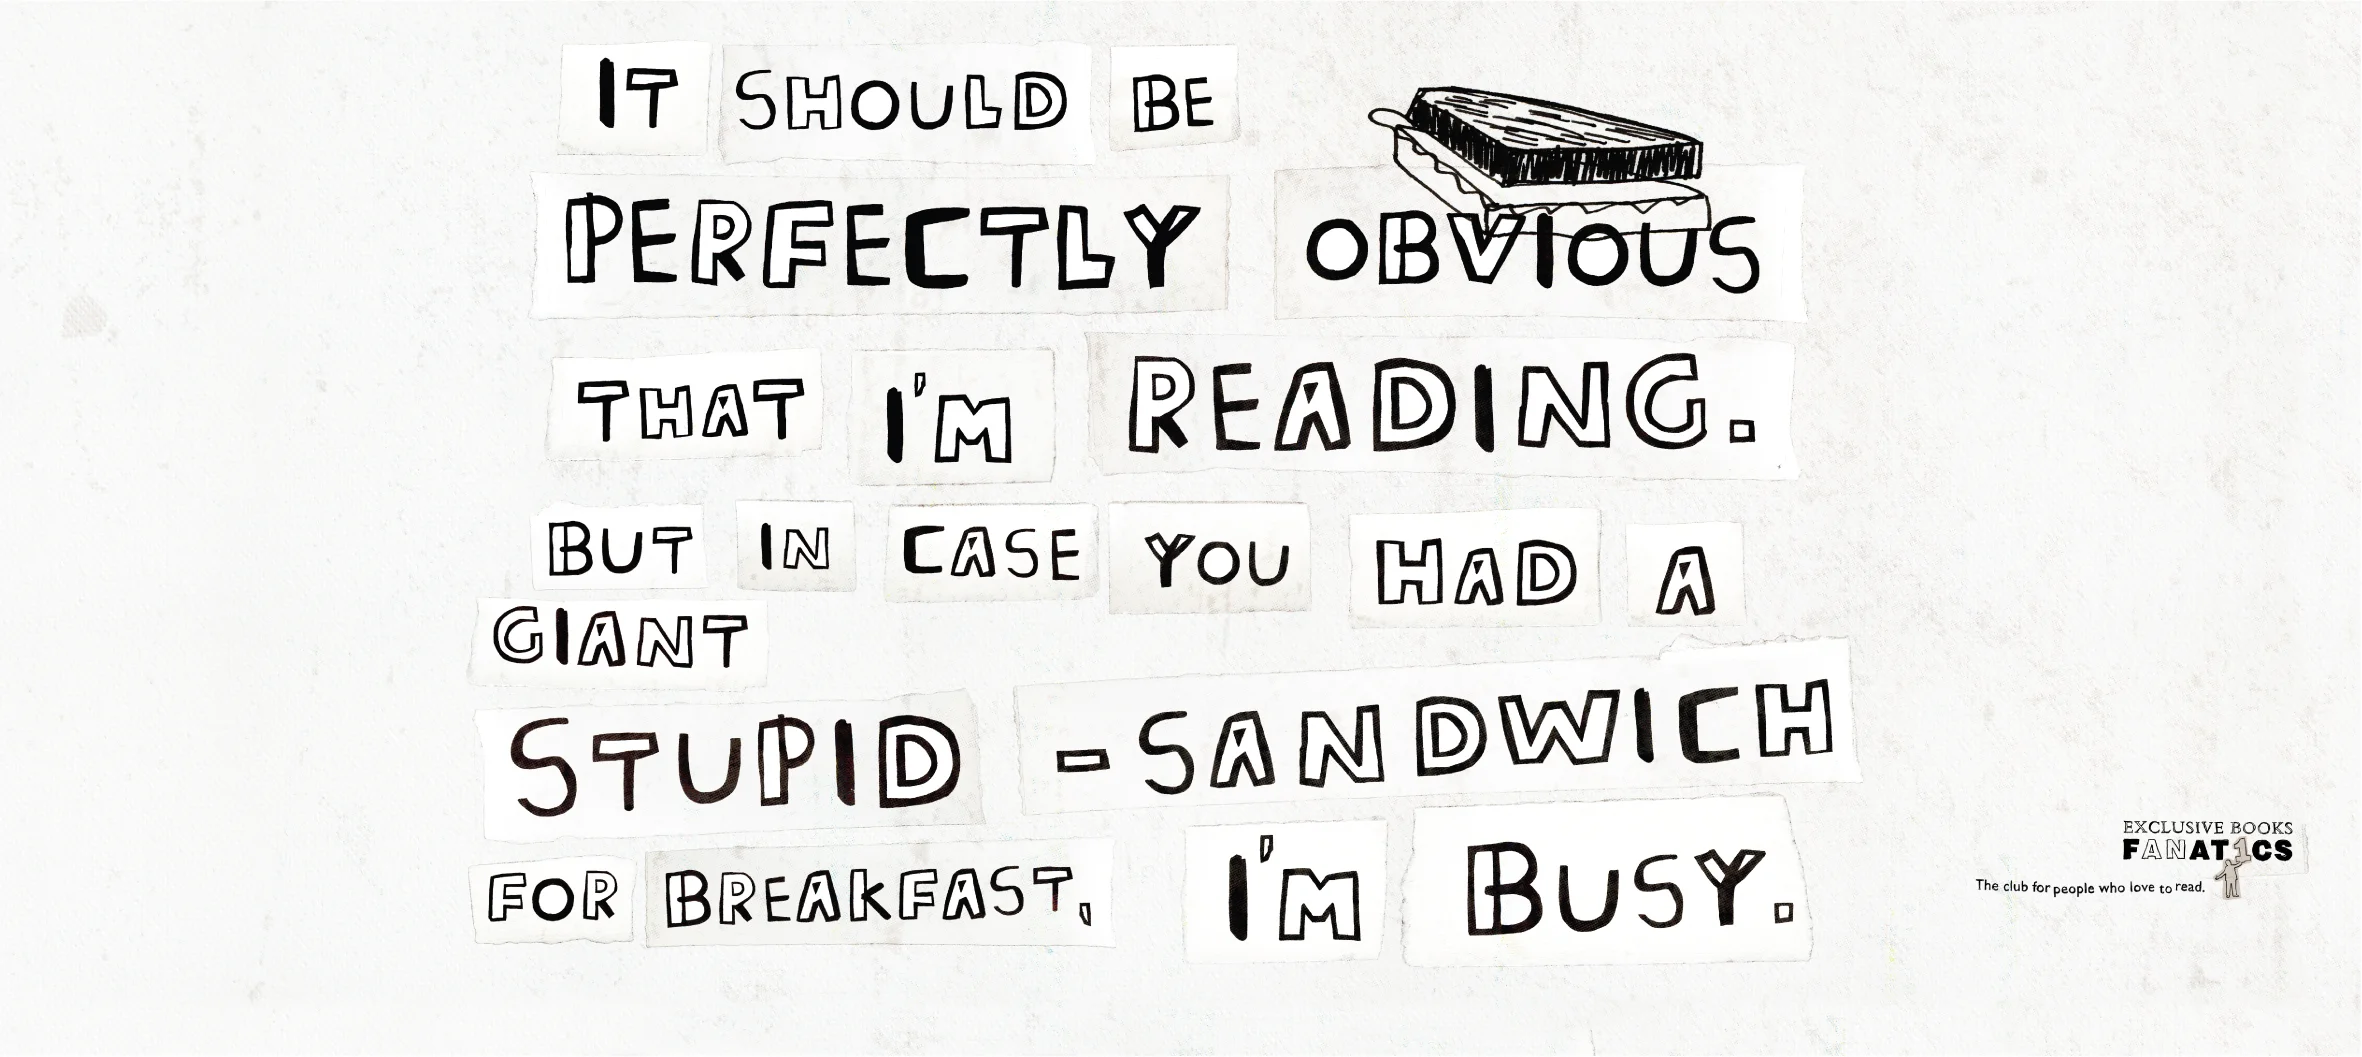 IT SHOULD BE
PERFECTLY OBVIOUS
THAT I'M READING.
BUT IN CASE YOU HAD A
GIANT
STUPID -SANDWICH
FOR BREAKFAST, I'M BUSY.
EXCLUSIVE BOOKS
FANAT1CS
The club for people who love to read.